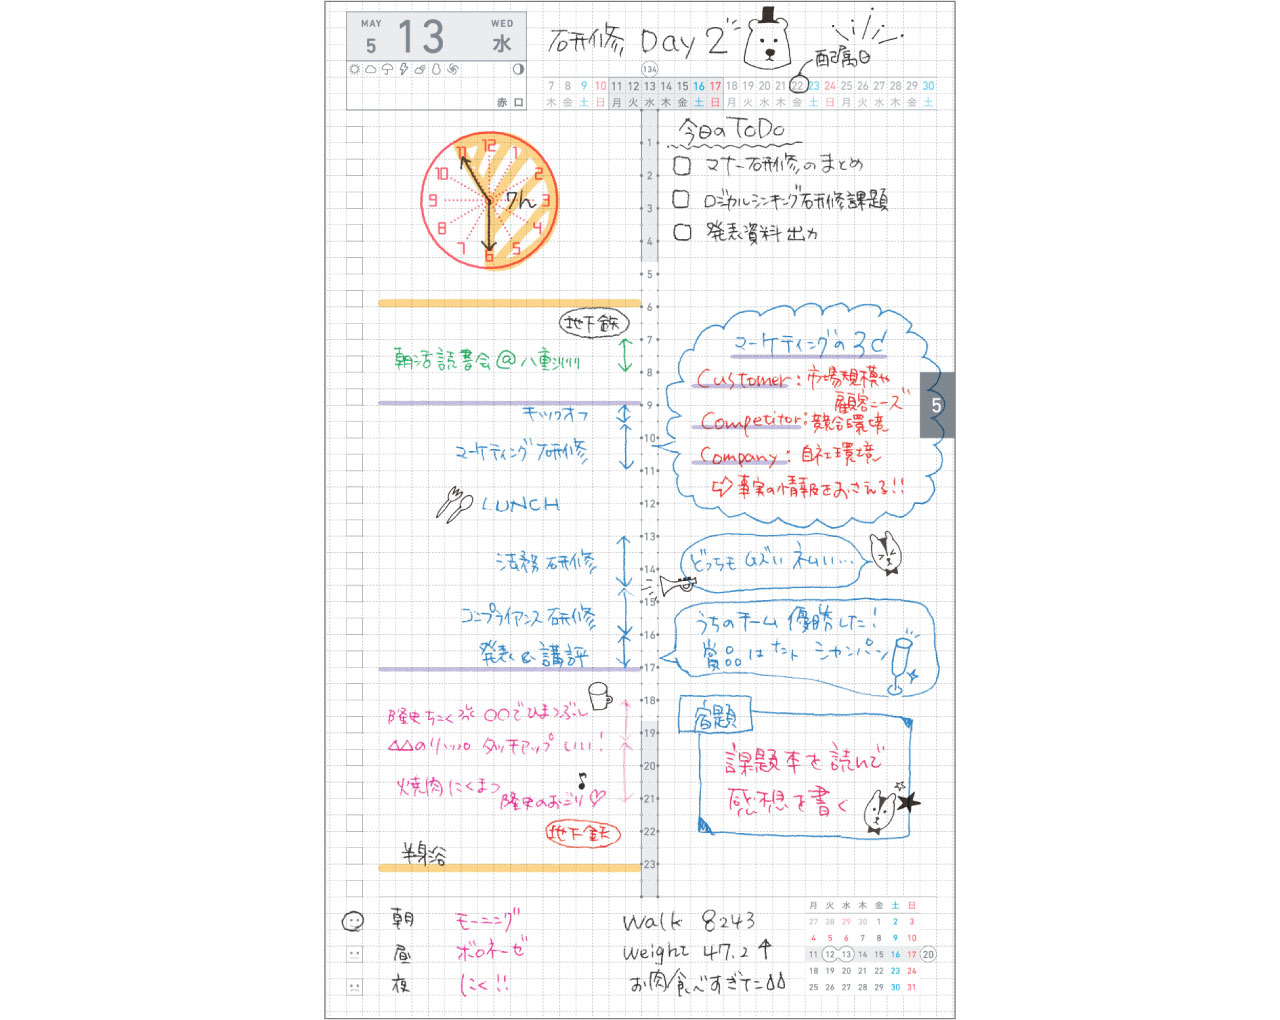 MAY 5 13 WED 水
赤口
研修 Day 2
配属日
134
7 8 9 10 11 12 13 14 15 16 17 18 19 20 21 22 23 24 25 26 27 28 29 30
木 金 土 日 月 火 水 木 金 土 日 月 火 水 木 金 土 日 月 火 水 木 金 土
今日のToDo
マナー研修のまとめ
ロジカルシンキング研修課題
発表資料出力
12 1 2 3 4 5 6 7 8 9 10 11
7h
1
2
3
4
5
6
7
8
9
10
11
12
13
14
15
16
17
18
19
20
21
22
23
地下鉄
朝活読書会@八重洲
キックオフ
マーケティング研修
LUNCH
法務研修
コンプライアンス研修
発表&講評
隆史ちこく ○○でひまつぶし
△△のリップ タッチアップ いい!
焼肉にくまつ
隆史のおごり♡
地下鉄
半身浴
マーケティングの3C
Customer:市場規模や
顧客ニーズ
Competitor:競合環境
Company:自社環境
⇨事実の情報をおさえる!!
5
どっちもムズい ネムい…
うちのチーム優勝した!
賞品はなんと シャンパン
宿題
課題本を読んで
感想を書く
朝 モーニング
昼 ボロネーゼ
夜 にく!!
walk 8243
weight 47.2↑
お肉食べすぎた
月 火 水 木 金 土 日
27 28 29 30 1 2 3
4 5 6 7 8 9 10
11 12 13 14 15 16 17 20
18 19 20 21 22 23 24
25 26 27 28 29 30 31